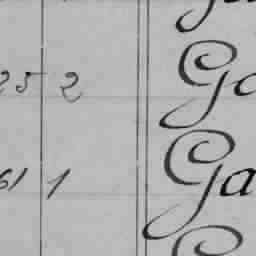 25 2 Ga
61 1 Ga